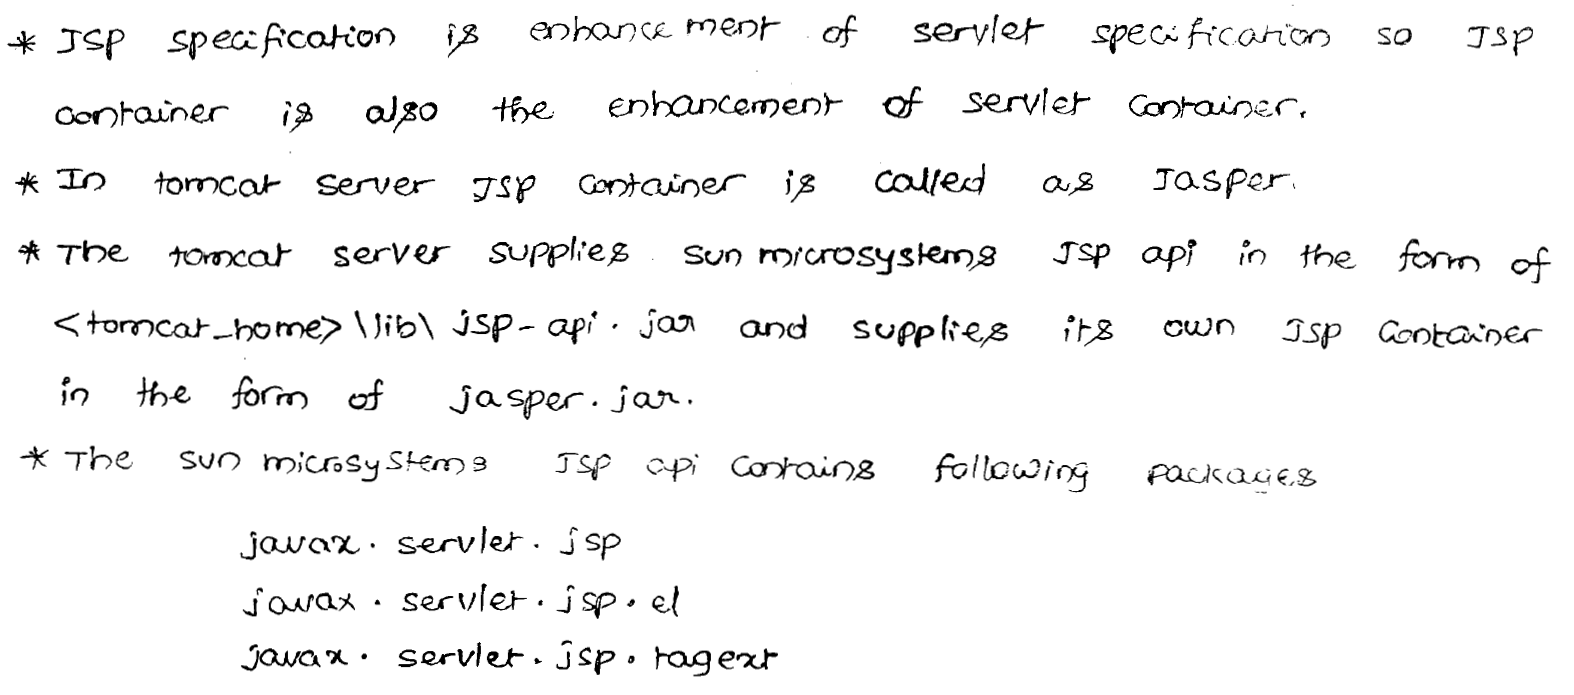 * JSP specification is enhancement of servlet specification so JSP
container is also the enhancement of servlet container.
* In tomcat server JSP container is called as Jasper.
* The tomcat server supplies sun microsystems JSP api in the form of
<tomcat_home>\lib\ jsp-api.jar and supplies its own JSP Container
in the form of jasper.jar.
* The sun microsystems JSP api contains following packages
javax.servlet.jsp
javax.servlet.jsp.el
javax.servlet.jsp.tagext